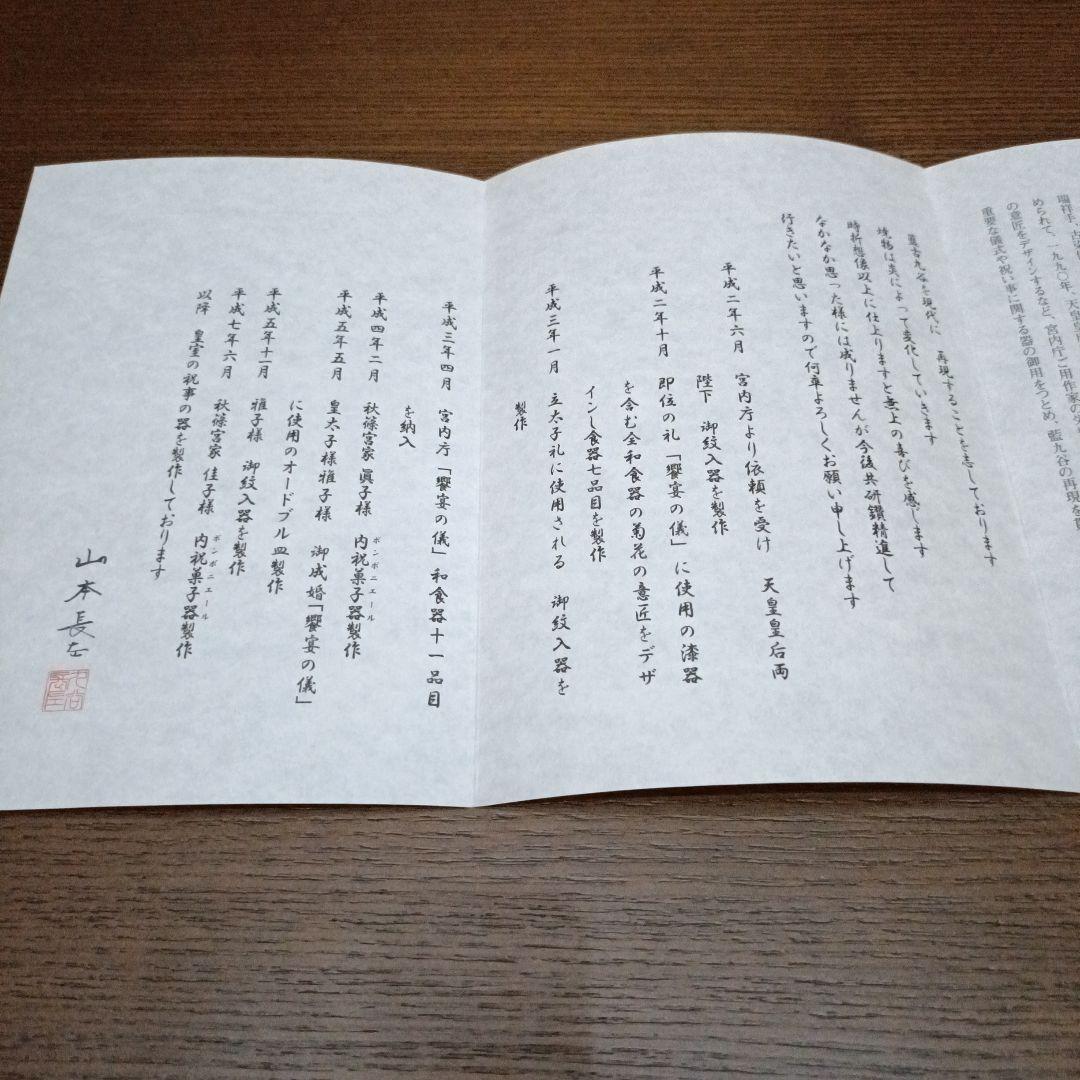 瑞祥手、古染
められて、一九九〇年、天皇皇
の意匠をデザインするなど、宮内庁ご用作家の
重要な儀式や祝い事に関する器の御用をつとめ、藍九谷の再現を
藍古九谷を現代に 再現することを志しております
焼物は炎によって変化していきます
時折想像以上に仕上りますと無上の喜びを感じます
なかなか思った様には成りませんが今後共研鑽精進して
行きたいと思いますので何卒よろしくお願い申し上げます
平成二年六月 宮内庁より依頼を受け 天皇皇后両
陛下 御紋入器を製作
平成二年十月 即位の礼「饗宴の儀」に使用の漆器
を含む全和食器の菊花の意匠をデザ
インし食器七品目を製作
平成三年一月 立太子礼に使用される 御紋入器を
製作
平成三年四月 宮内庁「饗宴の儀」和食器十一品目
を納入
平成四年二月 秋篠宮家 眞子様 内祝菓子器製作
ボンボニエール
平成五年五月 皇太子様雅子様 御成婚「饗宴の儀」
に使用のオードブル皿製作
平成五年十一月 雅子様 御紋入器を製作
平成七年六月 秋篠宮家 佳子様 内祝菓子器製作
ボンボニエール
以降 皇室の祝事の器を製作しております
山本長左